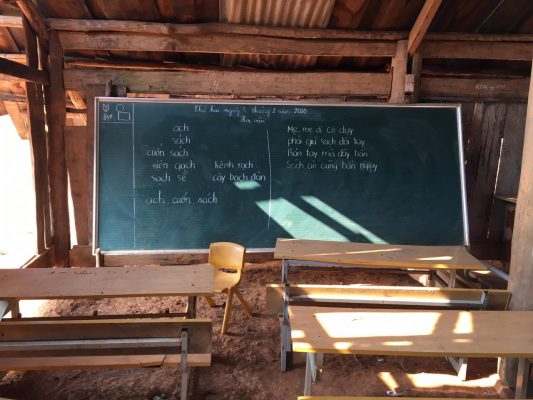 Thứ hai ngày 1 tháng 6 năm 2020
Học vần
ach
sách
cuốn sách
viên gạch kênh rạch
sạch sẽ cây bạch đàn
ach cuốn sách
Mẹ, mẹ ơi cô dạy
phải giữ sạch đôi tay
Bàn tay mà dây bẩn
Sách áo cũng bẩn ngay